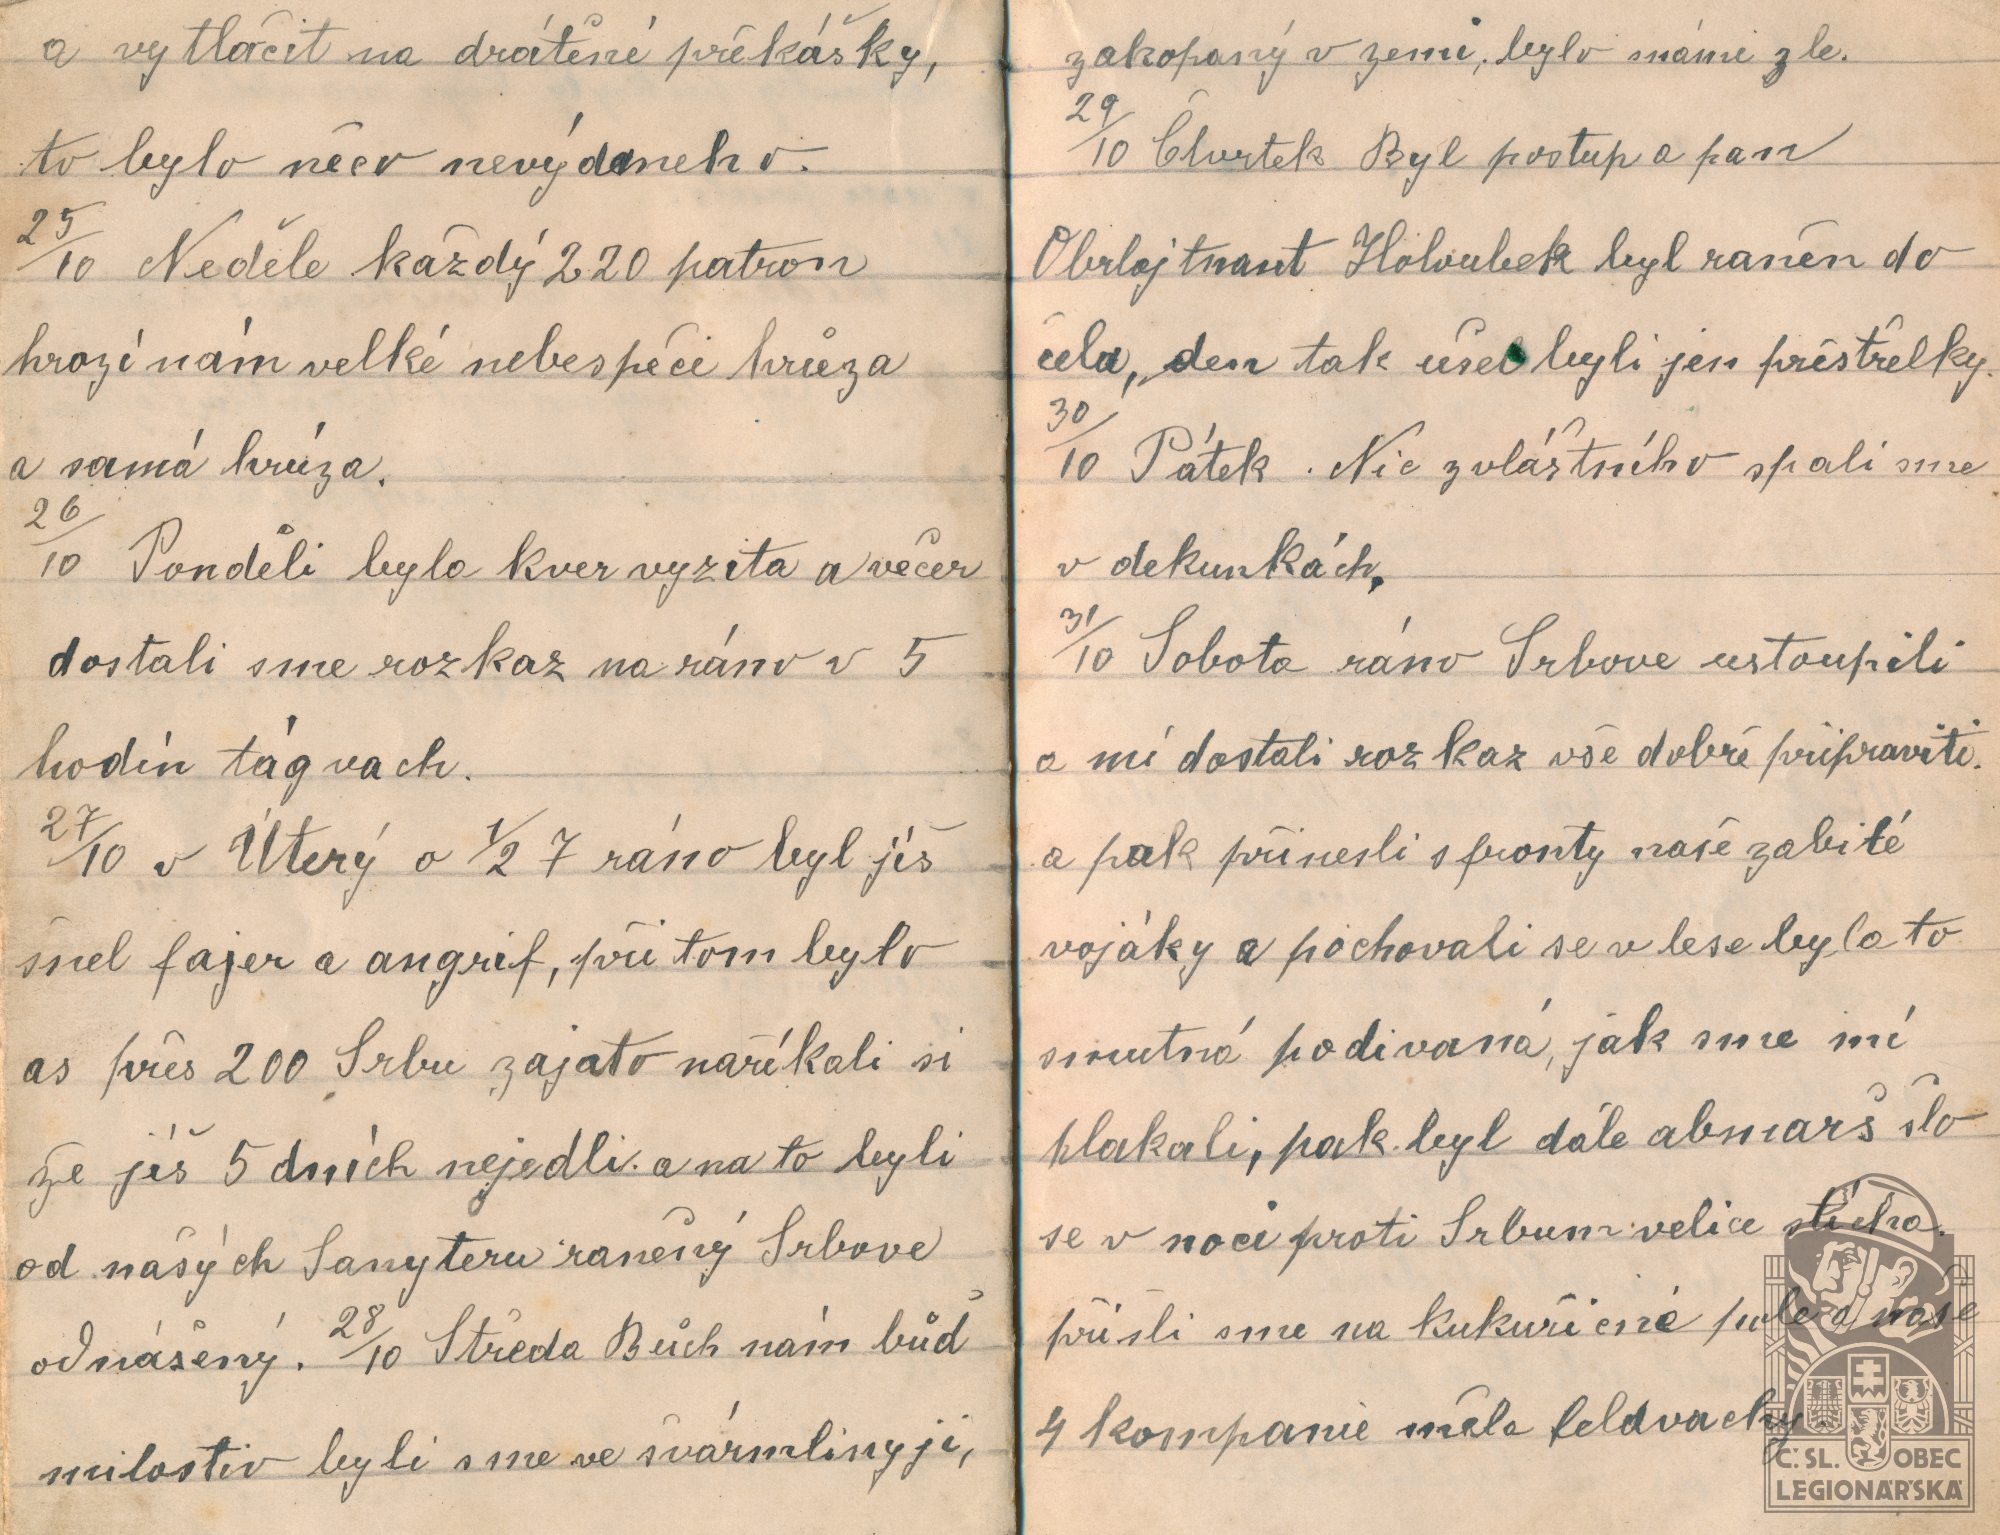 a vytlačit na drátěné překášky,
to bylo něco nevýdaneho.
25/10 Neděle každý 220 patron
hrozí nám velké nebespečí hrůza
a samá hrúza.
26/10 Ponděli byla kver vyzita a večer
dostali sme rozkaz na ráno v 5
hodín tágvach.
27/10 v Úterý o 1/2 7 ráno byl jíš
šnel fajer a angrif, při tom bylo
as přes 200 Srbu zajato naříkali si
že jíš 5 dních nejedli. a na to byli
od nášých Sanyteru raněný Srbove
odnášený. 28/10 Středa Bůch nám bůď
milostiv byli sme ve švármlinyji,
zakopaný v zemi, bylo s námi zle.
29/10 Čtvrtek Byl postup a pan
Obrlojtnant Holoubek byl raněn do
čela, den tak ušel byli jen přestřelky.
30/10 Pátek. Nic zvláštního spali sme
v dekunkách,
31/10 Sobota ráno Srbove ustoupili
a mí dostali rozkaz vše dobře připraviti.
a pak přinesli s fronty naše zabité
vojáky a pochovali se v lese byla to
smutná podivaná, jak sme mí
plakali, pak byl dále abmarš šlo
se v noci proti Srbum velice tícho.
příšli sme na kukuřicné pole a naše
4 kompanie měla feldvachy.
Č. SL. OBEC
LEGIONÁŘSKÁ